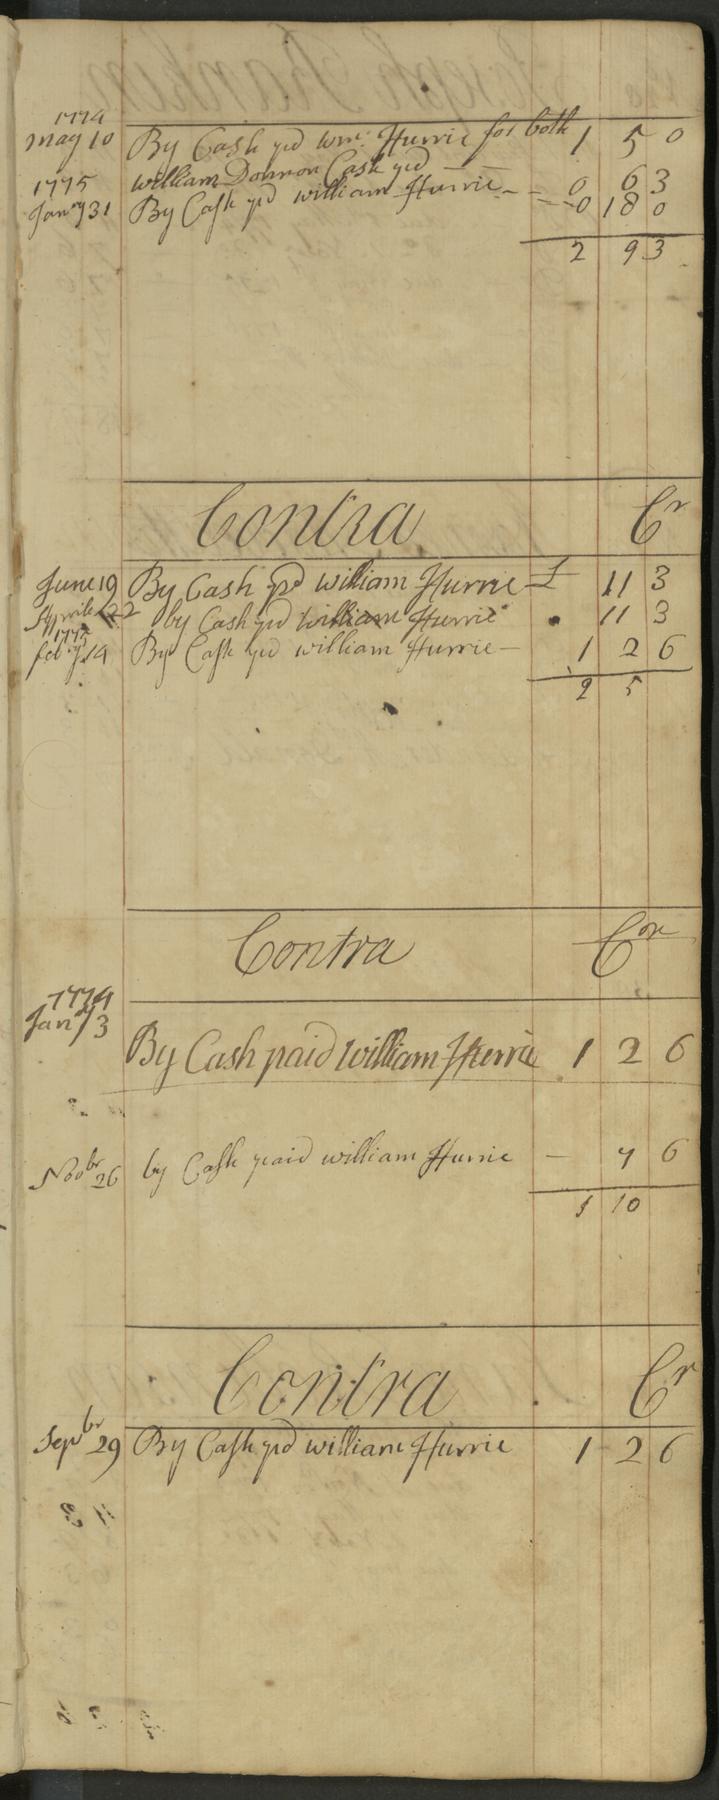 1774
may 10 By Cash pd Wm: Hurrie for both 1 5 0
William Donnon Cash pd 0 6 3
1775
Janry 31 By Cash pd william Hurrie 0 18 0
2 9 3
Contra Cr
June 19 By Cash pd william Hurrie £ 11 3
Aprile 22 by Cash pd william Hurrie 11 3
1775
feb ry 14 By Cash pd william Hurrie 1 2 6
2 5
Contra Cor
1774
Janry 3
By Cash paid William Hurrie 1 2 6
Novbr 26 by Cash paid william Hurrie — 7 6
1 10
Contra Cr
Sepbr 29 By Cash pd william Hurrie 1 2 6